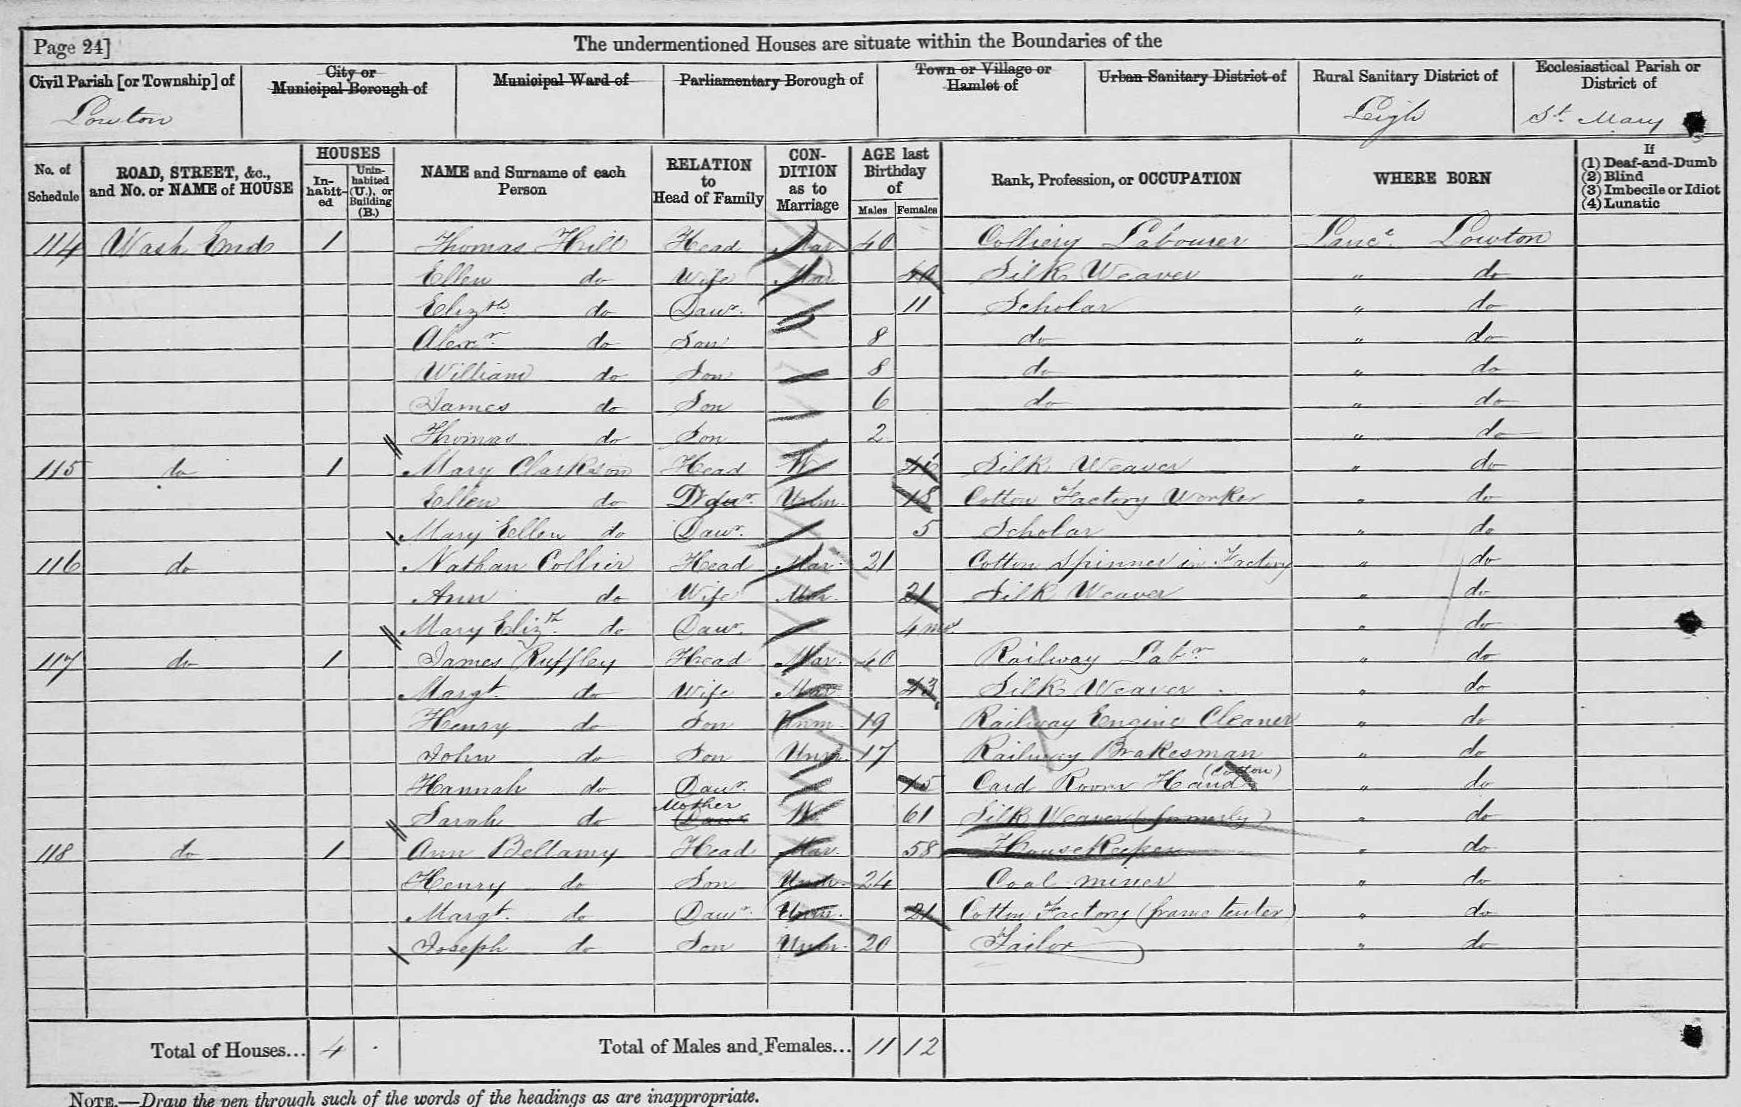 Page 24]
The undermentioned Houses are situate within the Boundaries of the
Civil Parish [or Township] of City or Municipal Borough of Municipal Ward of Parliamentary Borough of Town or Village or Hamlet of Urban Sanitary District of Rural Sanitary District of Ecclesiastical Parish or District of
Lowton Leigh St. Mary
No. of Schedule ROAD, STREET, &c., and No. or NAME of HOUSE HOUSES Inhabited Uninhabited (U.), or Building (B.) NAME and Surname of each Person RELATION to Head of Family CONDITION as to Marriage AGE last Birthday of Males Females Rank, Profession, or OCCUPATION WHERE BORN If (1) Deaf-and-Dumb (2) Blind (3) Imbecile or Idiot (4) Lunatic
114 Wash End 1 Thomas Hill Head Mar 40 Colliery Labourer Lanc. Lowton
Ellen do Wife Mar 40 Silk Weaver " do
Elizth. do Daur. 11 Scholar " do
Alexr. do Son 8 do " do
William do Son 8 do " do
James do Son 6 do " do
Thomas do Son 2 " do
115 do 1 Mary Clarkson Head W 46 Silk Weaver " do
Ellen do Daur. Unm. 18 Cotton Factory Worker " do
Mary Ellen do Daur. 5 Scholar " do
116 do Nathan Collier Head Mar. 21 Cotton Spinner in Factory " do
Ann do Wife Mar. 21 Silk Weaver " do
Mary Elizth. do Daur. 4 mos. " do
117 do 1 James Ruffley Head Mar. 40 Railway Labr. " do
Margt. do Wife Mar 43 Silk Weaver " do
Henry do Son Unm. 19 Railway Engine Cleaner " do
John do Son Unm. 17 Railway Brakesman " do
Hannah do Daur. 15 Card Room Hand (Cotton) " do
Sarah do Mother Daur W. 61 Silk Weaver (formerly) " do
118 do 1 Ann Bellamy Head Mar. 58 House Keeper " do
Henry do Son Unm. 24 Coal miner " do
Margt. do Daur. Unm. 21 Cotton Factory (frame tenter) " do
Joseph do Son Unm. 20 Tailor " do
Total of Houses... 4 . Total of Males and Females... 11 12
NOTE.—Draw the pen through such of the words of the headings as are inappropriate.